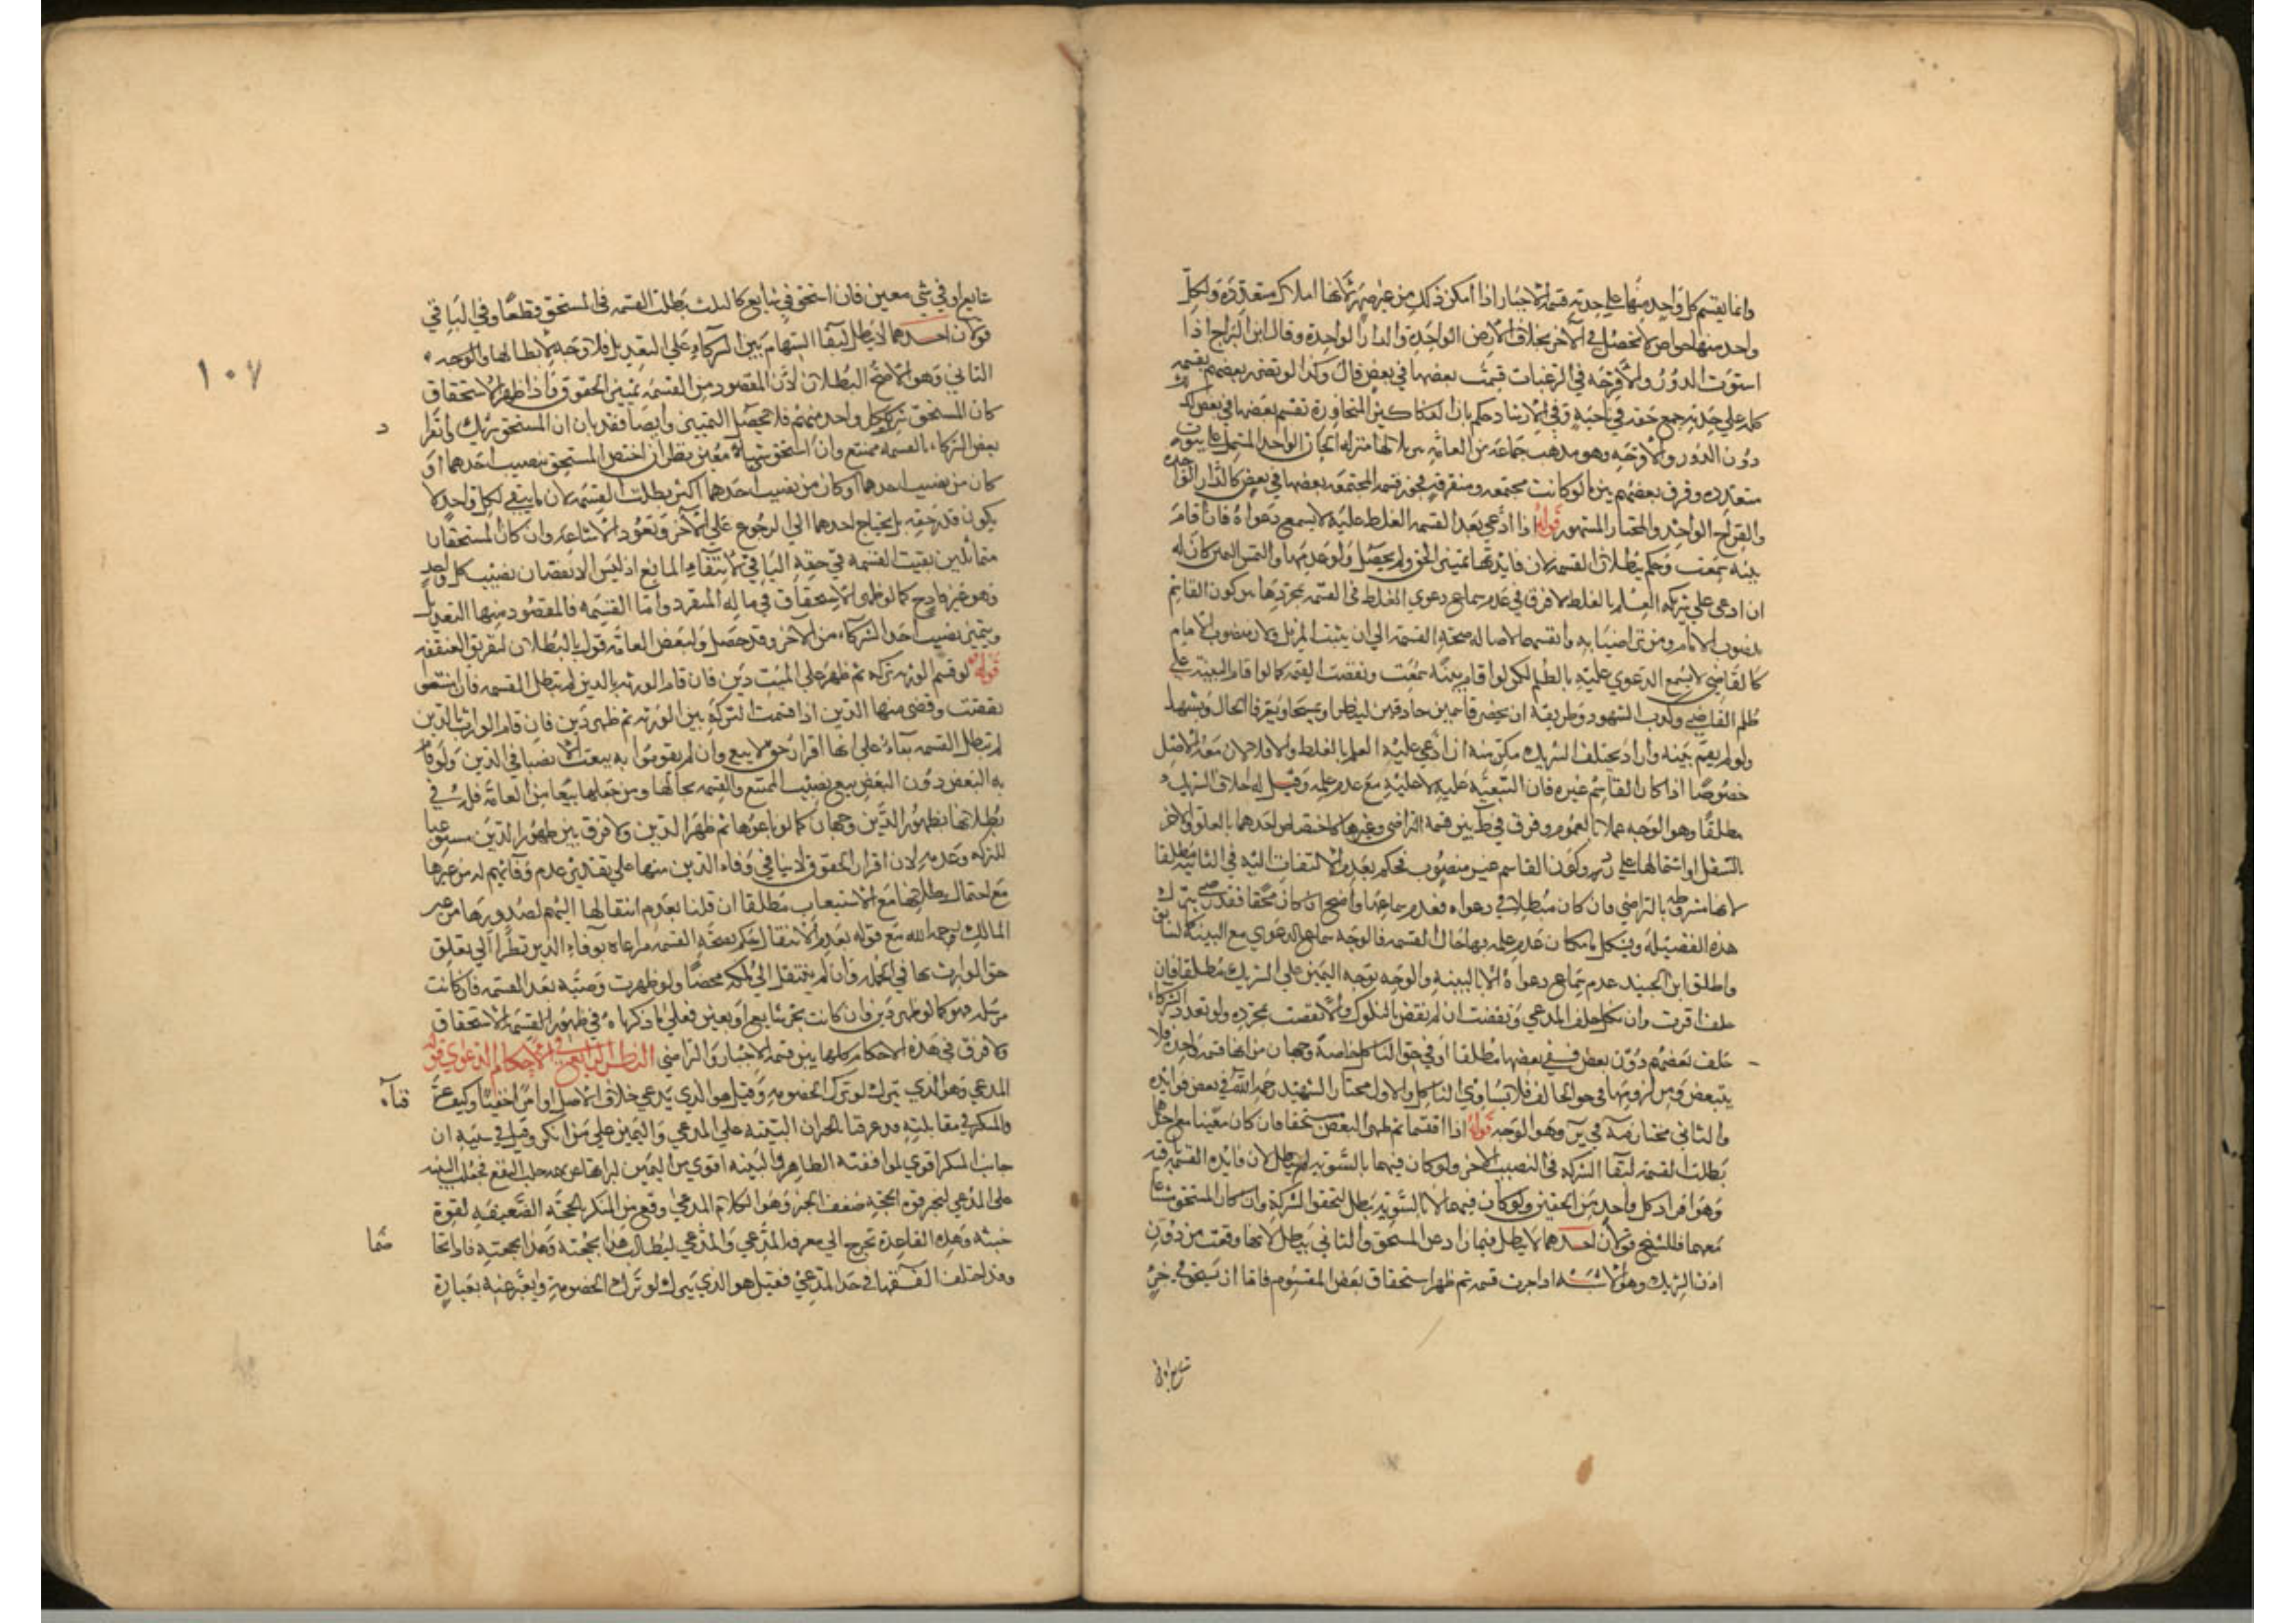 وانما يقسم كل واحد منها علي حدته قسمة الاجبار اذا امكن ذلك من غير ضرر لانها املاك متعددة ولكل
واحد منها خواص لا تحصل في الآخر بخلاف الارض الواحدة والدار الواحدة وقال ابن البراج اذا
استوت الدور والاقرحه في الرغبات قسمت بعضها في بعض قال وكذا لو تضرر بعضهم بقسمه
كل علي حدته جمع حقه في ناحيه وفي الارشاد حكم بان الدكاكين المتجاورة تقسم بعضها في بعض
دون الدور والاقرحه وهو مذهب جماعة من العامه منزله الخان الواحد المشتمل علي بيوت
متعدده وفرق بعضهم بين ما لو كانت مجتمعه ومتفرقه فيجوز قسمه المجتمعه بعضها في بعض كالدار الواحده
والقراح الواحد والمختار المشهور قوله اذا ادعي بعد القسمه الغلط عليه لا يسمع دعواه فان اقام
بينه سمعت وحكم ببطلان القسمه لان فايدتها تميز الحق ولم يحصل ولو عدمها والتمس اليمين كان له
ان ادعي علي شريكه العلم بالغلط لا فرق في عدم سماع دعوي الغلط في القسمه بمجردها بين كون القاسم
منصوب الامام ومن تراضيا به وانفسهما لاصالة صحة القسمه الي ان يثبت المزيل ولان منصوب الامام
كالقاضي لا يسمع الدعوي عليه بالظلم لكن لو اقام بينة سمعت ونقضت القسمه كما لو اقام البينه علي
ظلم القاضي وكذب الشهود وطريقه ان يحضر قاسمين حاذقين لينظرا ويمسحا ويعرفا الحال ويشهدا
ولو لم يقم بينه واراد تحليف الشريك مكن منه ان ادعي عليه العلم بالغلط والا فلا لان معه الاصل
خصوصا اذا كان القاسم غيره فان التبعيه عليه لا عليه مع عدم علمه وقيل له احلاف الشريك
مطلقا وهو الوجه عملا بالعموم وفرق في ط بين قسمة التراضي وغيرها كاختصاص احدهما بالعلو والاخر
السفل او اشتمالها علي رد وكون القاسم غير منصوب فحكم بعدم الالتفات اليه في الثانيه مطلقا
لانها مشروطه بالتراضي فان كان مبطلا في دعواه فعدم سماعها واضح وان كان محقا فقد رضي بترك
هذه الفضيلة ويشكل بامكان عدم علمه بها حال القسمه فالوجه سماع الدعوي مع البينه كالسابق
واطلق ابن الجنيد عدم سماع دعواه الا بالبينه والوجه توجه اليمين علي الشريك مطلقا فان
حلف اقرت وان نكل حلف المدعي ونقضت ان لم نقض بالنكول والا نقضت بمجرده ولو تعدد الشركاء
حلف بعضهم دون بعض ففي بعضها مطلقا او في حق الناكل خاصة وجهان من انها قسمه واحده فلا
يتبعض ومن لزومها في حق الحالف فلا يساوي الناكل والاول مختار الشهيد رحمه الله في بعض فوايده
والثاني مختار المصنف في ير وهو الوجه قوله اذا اقتسما ثم ظهر البعض مستحقا فان كان معينا مع احدهما
بطلت القسمه لبقا الشركه في النصيب الآخر ولو كان فيهما بالسويه لم يبطل لان فايده القسمه
وهو افراد كل واحد من الحقين ولو كان فيهما لا بالسويه بطل لتحقق الشركة وان كان المستحق مشاعا
معهما فللشيخ قولان احدهما لا يبطل فيما زاد عن المستحق والثاني يبطل لانها وقعت من دون
اذن الشريك وهو الاشبه اذا جرت قسمه ثم ظهر استحقاق بعض المقسوم فاما ان يستحق في جزء
شايع او في
شايع او في شي معين فان استحق في شايع كالثلث بطلت القسمه في المستحق قطعا وفي الباقي
قولان احدهما لا يبطل لبقا السهام بين الشركاء علي التعديل فلا وجه لابطالها والوجه
الثاني وهو الاصح البطلان لان المقصود من القسمه تمييز الحقوق فاذا ظهر الاستحقاق
كان المستحق شريك كل واحد منهم فلا يحصل التمييز وايضا فقد بان ان المستحق شريك وانفراد
بعض الشركاء بالقسمه ممتنع وان استحق شيأ معين نظر ان اختص المستحق بنصيب احدهما او
كان من نصيب احدهما او كان من نصيب احدهما اكثر بطلت القسمه لان ما يبقي لكل واحد لا
يكون قدر حقه بل يحتاج احدهما الي الرجوع علي الآخر وتعود الاشاعة وان كان المستحقان
متماثلين بقيت القسمه في حقه الباقي لانتفاء المانع اذ ليس الا نقصان نصيب كل واحد
وهو غير قادح كما لو ظهر الاستحقاق في ماله المنفرد واما القسمه فالمقصود منها التعديل
وتمييز نصيب احد الشركاء من الآخر وقد حصل ولبعض العامة قول بالبطلان لتفريق الصفقه
قوله لو قسم الورثه تركه ثم ظهر علي الميت دين فان قام الورثه بالدين لم تبطل القسمه فان امتنعوا
نقضت وقضي منها الدين اذا قسمت التركه بين الورثه ثم ظهر دين فان قام الوارث بالدين
لم تبطل القسمه بناء علي انها اقرار حق لا بيع وان لم يقوموا به بيعت الانصبا في الدين ولو قام
به البعض دون البعض بيع نصيب الممتنع والقسمه بحالها ومن جعلها بيعا من العامة فله في
بطلانها بظهور الدين وجهان كما لو باعوها ثم ظهر الدين ولا فرق بين ظهور الدين مستوعبا
للتركه وعدمه لان اقرار الحقوق لا ينافي وفاء الدين منها علي تقدير عدم وفائهم له من غيرها
مع احتمال بطلانها مع الاستيعاب مطلقا ان قلنا بعدم انتقالها اليهم لصدورها من غير
المالك رحمه الله مع قوله بعدم الانتقال حكم بصحة القسمه مراعاة بوفاء الدين نظرا الي تعلق
حق الوارث بها في الجمله وان لم ينتقل اليه ملكه محضا ولو ظهرت وصيه بعد القسمه فان كانت
مرسله فهو كما لو ظهر دين فان كانت بجزء شايع او بعين فعلي ما ذكرناه في ظهور القسمه الاستحقاق
ولا فرق في هذه الاحكام كلها بين قسمه الاجبار والتراضي النظر الرابع في الاحكام الدعاوي قوله
المدعي وهو الذي يترك لو ترك الخصومه وقيل هو الذي يدعي خلاف الاصل او امرا خفيا وكيف عرفناه
والمنكر في مقابلته قد عرفنا ان البينه علي المدعي واليمين علي من انكر وقيل في سببه ان
جانب المنكر اقوي لموافقته الظاهر والبينه اقوي من اليمين لبراءتها عن تهمه جلب النفع فجعل البينه
علي المدعي لينجبر قوة الحجه ضعف الجنبه وهو الكلام المدعي وقنع من المنكر بالحجة الضعيفه لقوة
جنبته وهذه القاعدة تحوج الي معرفة المدعي والمدعي ليطالب هذا بحجته وهذا بحجته فاذا تحاكما
وقد اختلف الفقها في حد المدعي فقيل هو الذي يترك لو ترك الخصومة ويعبر عنه بعبارة
١٠٧